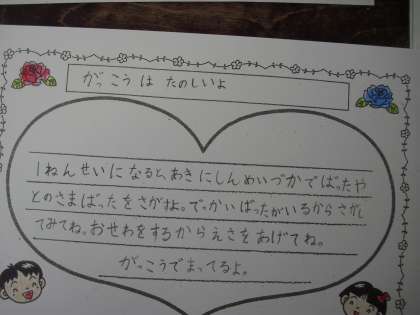 がっこう は たのしいよ
1ねんせいに なると、あき にしん めいづかで ばったや
とのさまばったをさがすよ。でっかいばったがいるからさがし
てみてね。おせわをするからえさをあげてね。
がっこうでまってるよ。